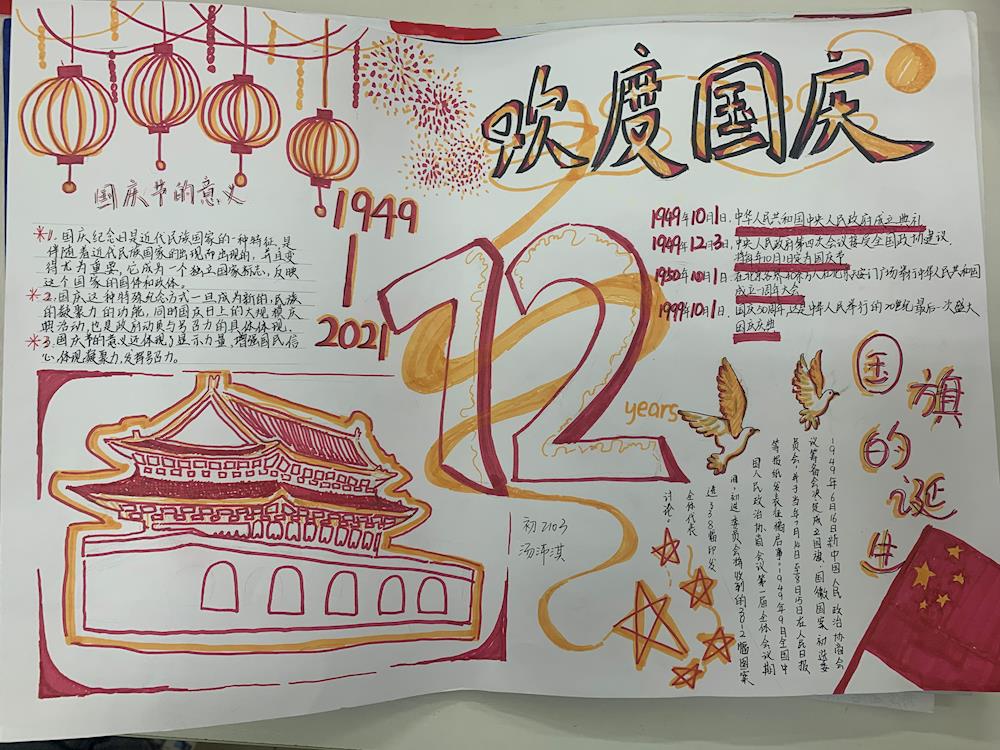 欢度国庆
国庆节的意义
*1. 国庆纪念日是近代民族国家的一种特征,是
伴随着近代民族国家的出现而出现的,并且变
得尤为重要。它成为一个独立国家标志,反映
这个国家的国体和政体。
*2. 国庆这种特殊纪念方式一旦成为新的,民族
的凝聚力的功能,同时国庆日上的大规模庆
祝活动,也是政府动员与号召力的具体体现,
*3. 国庆节的意义还体现了显示力量,增强国民信
心,体现凝聚力,发挥号召力。
1949
2021
72
years
1949年10月1日,中华人民共和国中央人民政府成立典礼
1949年12月3日,中央人民政府第四次会议接受全国政协建议,
将每年10月1日定为国庆节
1950年10月1日,在天安门广场举行中华人民共和国
成立一周年大会
1999年10月1日,国庆50周年,这是中华人民举行的20世纪最后一次盛大
国庆庆典
国旗的诞生
1949年6月16日新中国人民政治协商会
议筹备会决定成立国旗,国徽国案初选委
员会,并于当年7月14日至8月15日在人民日报
等报纸发表征稿启事。1949年9月全国中
国人民政治协商会议第一届全体会议期
间,初选委员会将收到的3012幅图案
选38幅印发
全体代表
讨论。
初2103
汤沛淇